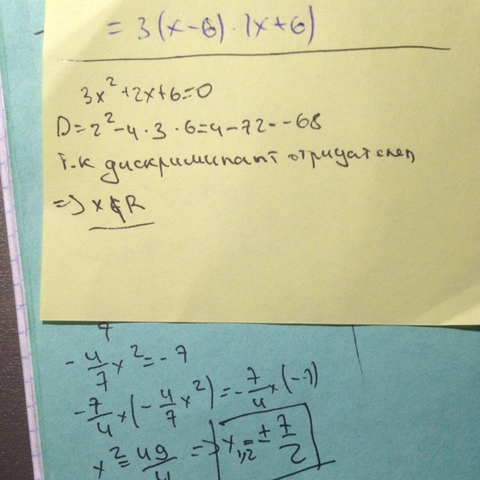 = 3(x-6)·(x+6)
3x²+2x+6=0
D=2²-4·3·6=4-72=-68
т.к дискриминант отрицателен
=> x∉R
7
-4/7x²=-7
-7/4x(-4/7x²)=-7/4x(-7)
x²=49/4 => x₁,₂=±7/2